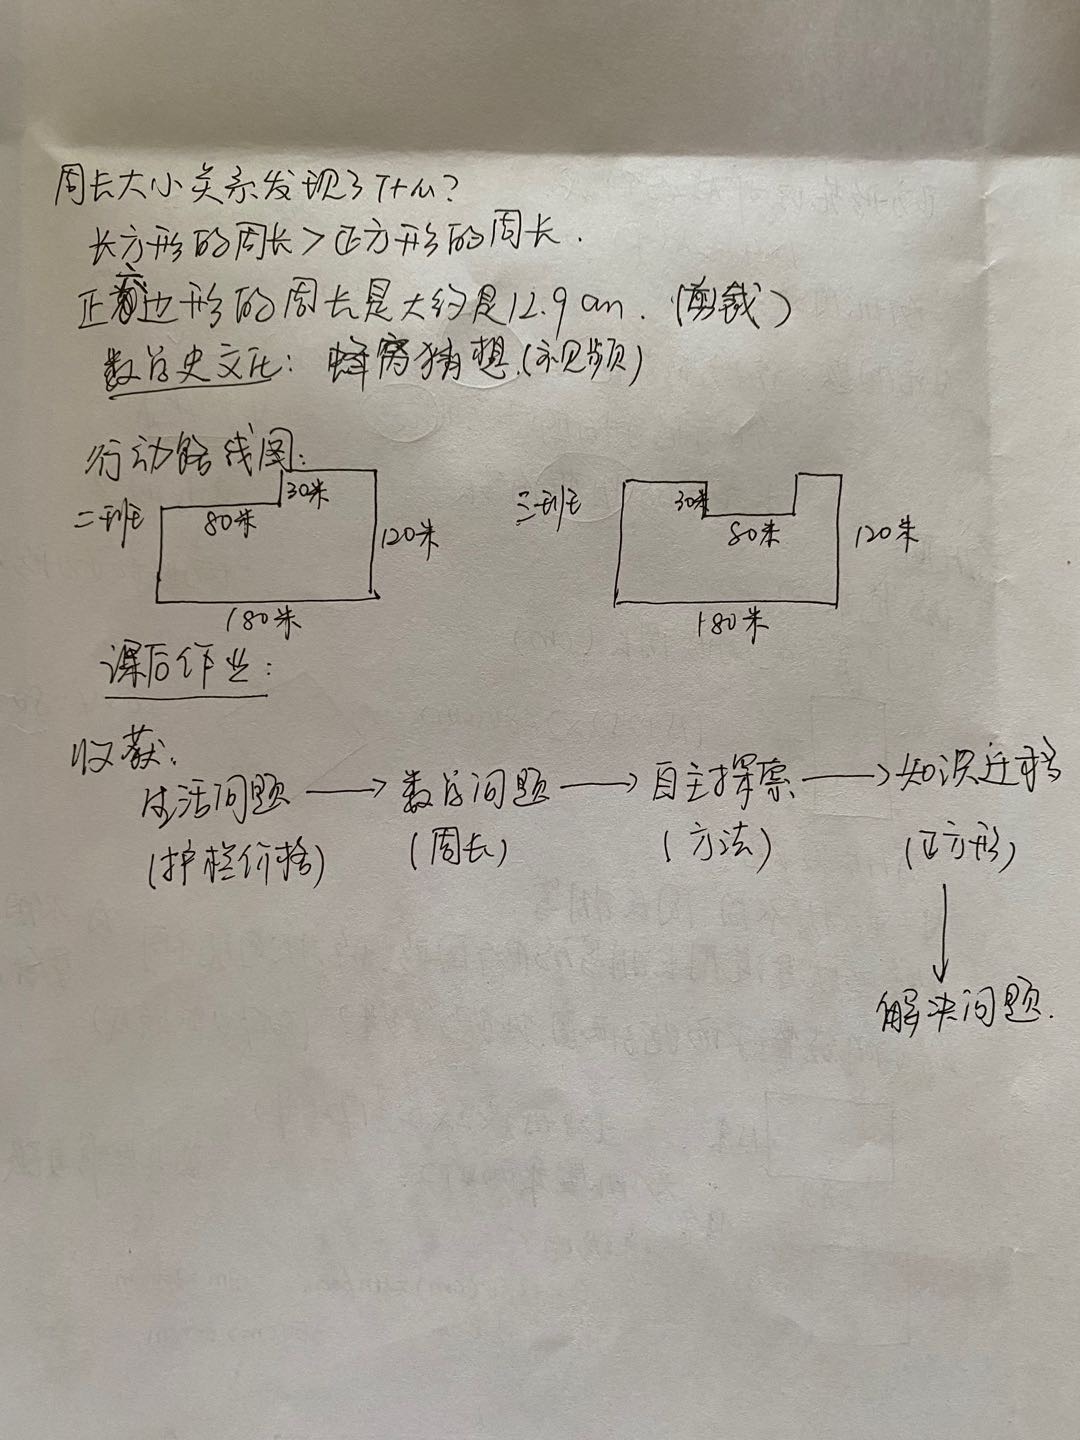 周长大小关系发现了什么?
长方形的周长>正方形的周长.
正六边形的周长是大约是12.9cm. (剪裁)
数学史文化: 蜂窝猜想.(视频)
行动路线图:
二班 80米 30米 120米 180米
三班 30米 80米 120米 180米
课后作业:
收获:
生活问题 → 数学问题 → 自主探索 → 知识迁移
(护栏价格) (周长) (方法) (正方形)
↓
解决问题.